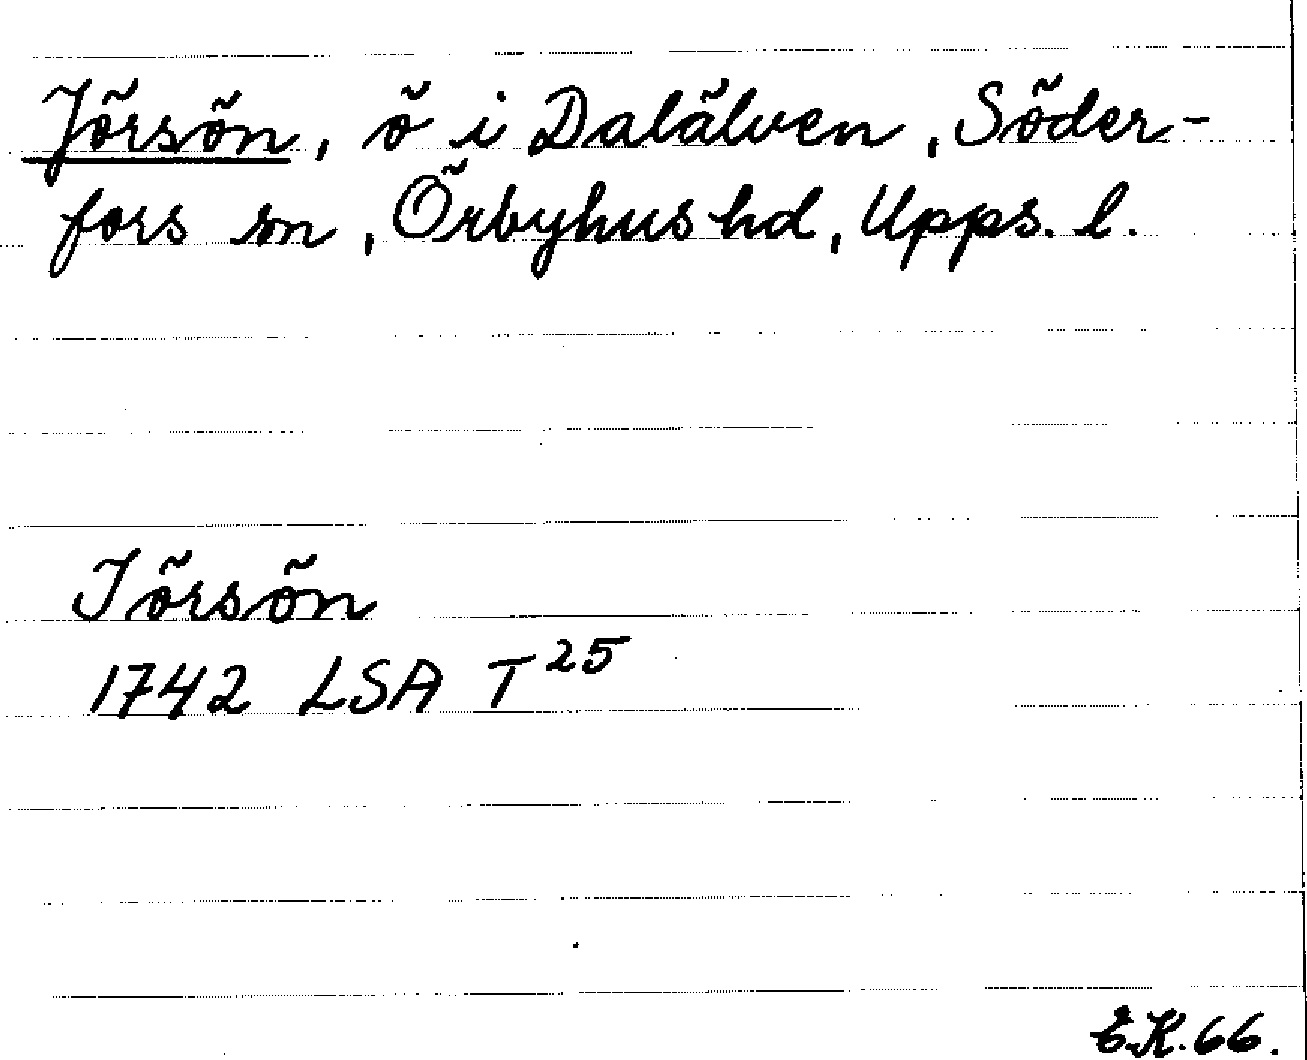 Jörsön, ö i Dalälven, Söder-
fors sn, Örbyhus hd, Upps. l.
Jörsön
1742 LSA T 25
E.K. 66.